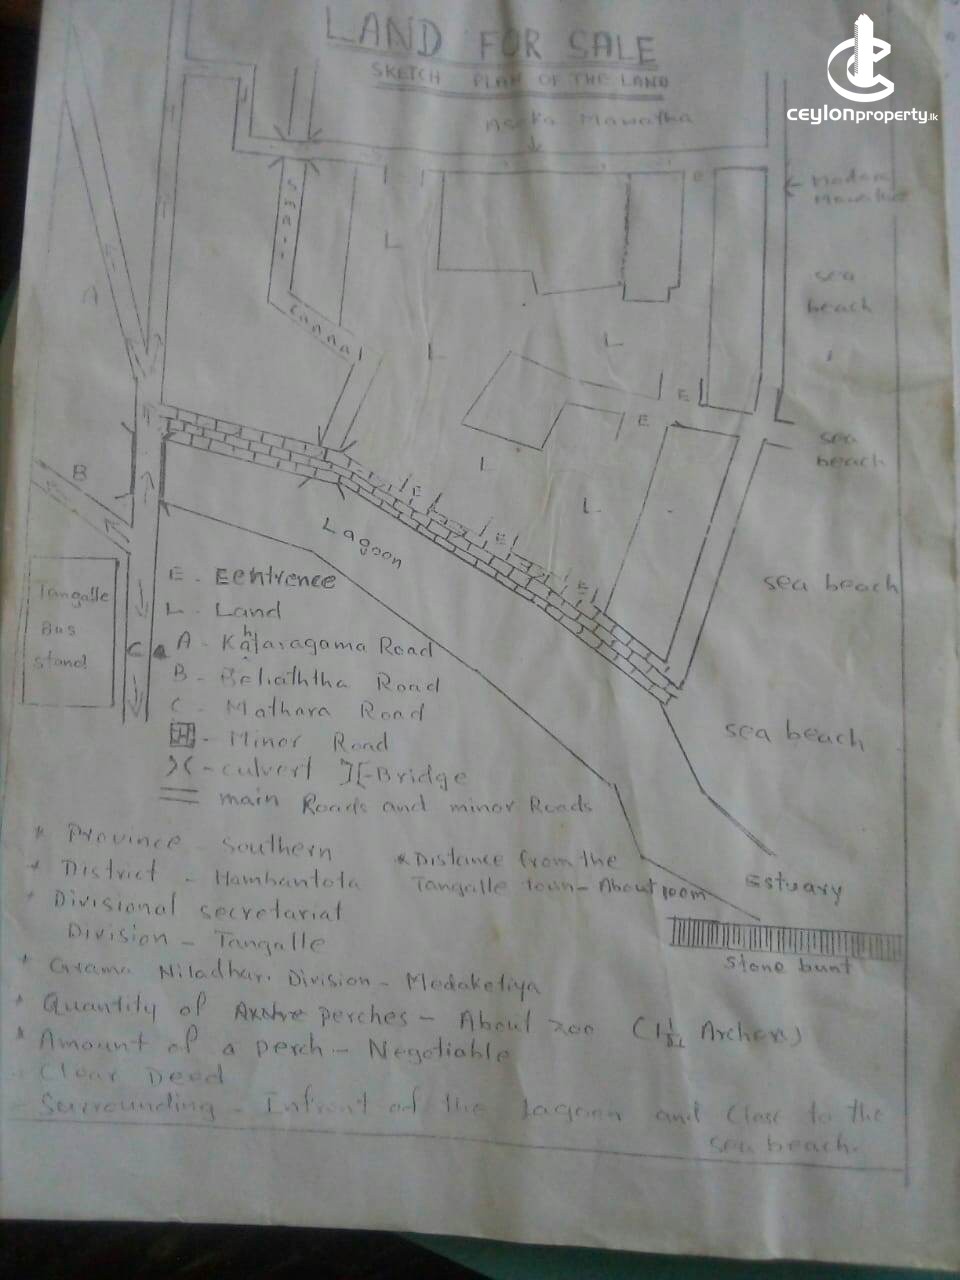 LAND FOR SALE
SKETCH PLAN OF THE LAND
ceylonproperty.lk
Asoka Mawatha
Small
Cannal
sea
beach
A
L
L
L
E
E
sea
beach
B
L
E
L
E
E
Lagoon
sea beach
Tangalle
Bus
stand
C
E - Eentrence
L - Land
A - Kataragama Road
h
B - Beliaththa Road
C - Mathara Road
- Minor Road
- culvert ][-Bridge
main Roads and minor Roads
sea beach
* Province - Southern
* District - Hambantota
* Divisional secretariat
Division - Tangalle
* Distance from the
Tangalle town - About 100m
Estuary
stone bunt
* Grama Niladhari Division - Medaketiya
* Quantity of perches - About 200
* Amount of a perch - Negotiable
- Clear Deed
- Surrounding - Infront of the Lagoon and Close to the
sea beach.